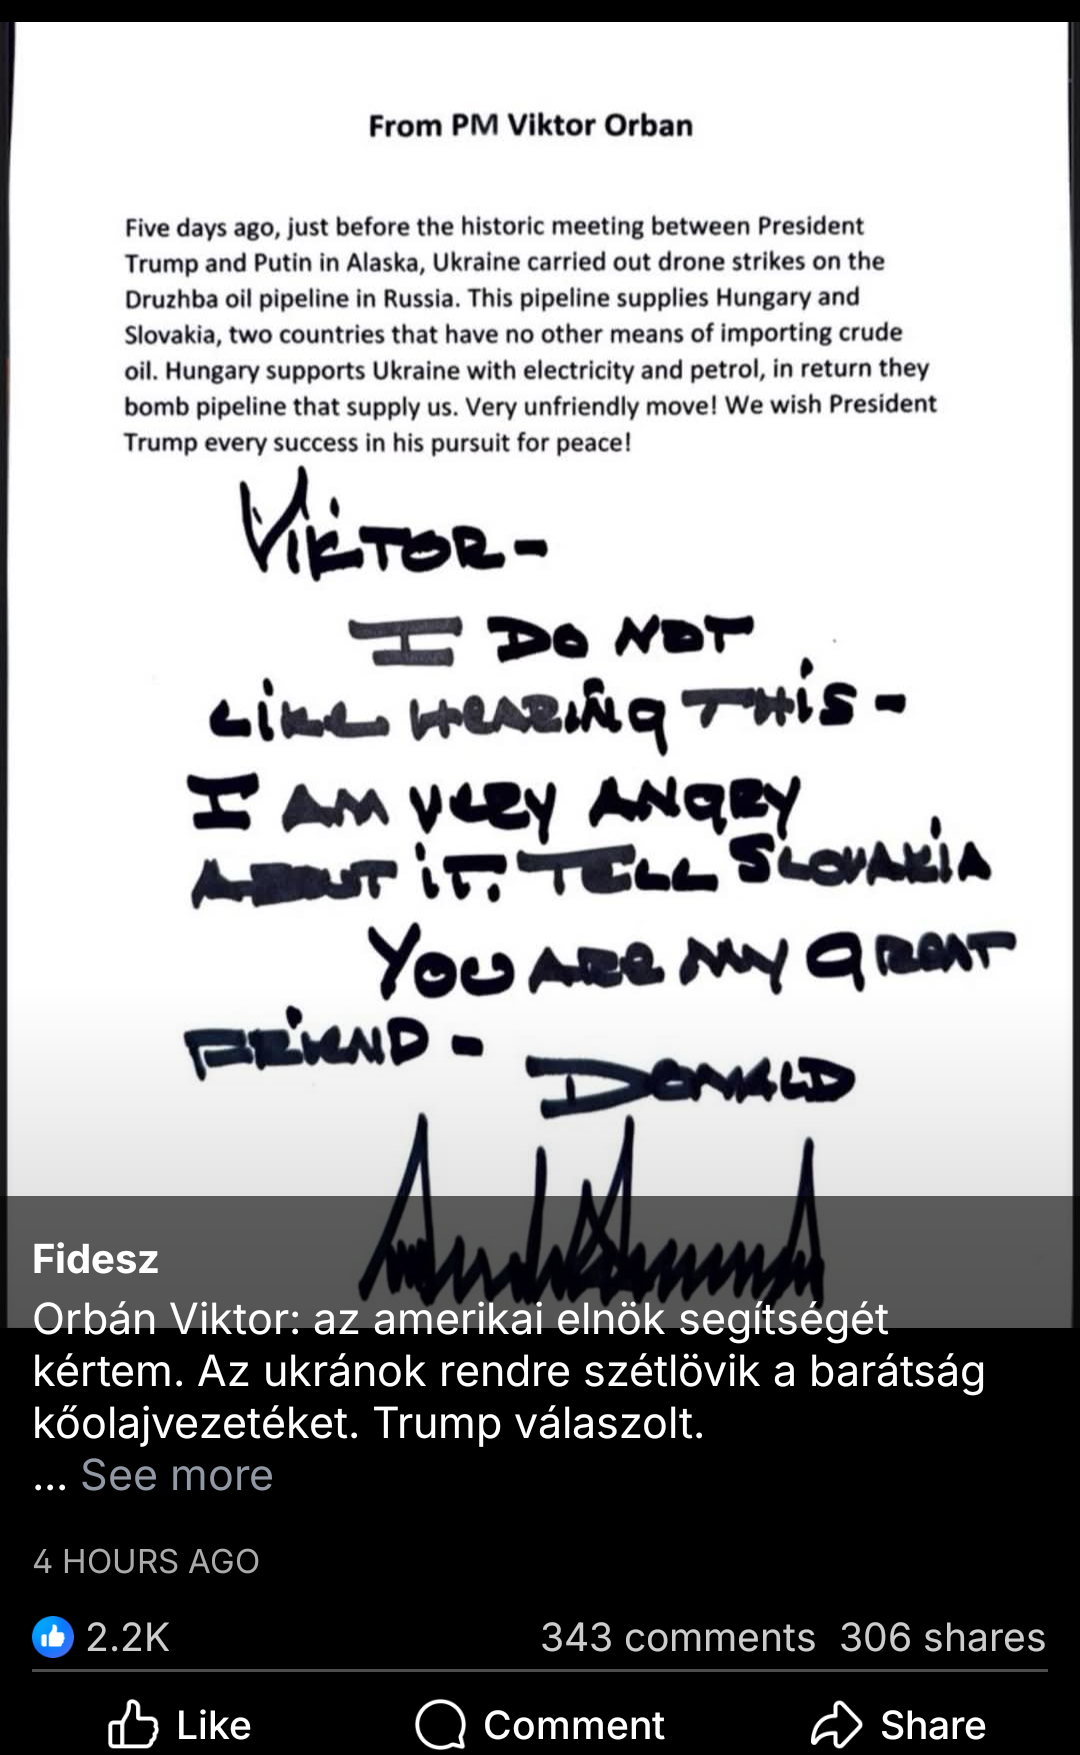 From PM Viktor Orban
Five days ago, just before the historic meeting between President
Trump and Putin in Alaska, Ukraine carried out drone strikes on the
Druzhba oil pipeline in Russia. This pipeline supplies Hungary and
Slovakia, two countries that have no other means of importing crude
oil. Hungary supports Ukraine with electricity and petrol, in return they
bomb pipeline that supply us. Very unfriendly move! We wish President
Trump every success in his pursuit for peace!
VIKTOR -
I DO NOT
LIKE HEARING THIS -
I AM VERY ANGRY
ABOUT IT. TELL SLOVAKIA
YOU ARE MY GREAT
FRIEND - DONALD
Fidesz
Orbán Viktor: az amerikai elnök segítségét
kértem. Az ukránok rendre szétlövik a barátság
kőolajvezetéket. Trump válaszolt.
... See more
4 HOURS AGO
2.2K 343 comments 306 shares
Like Comment Share